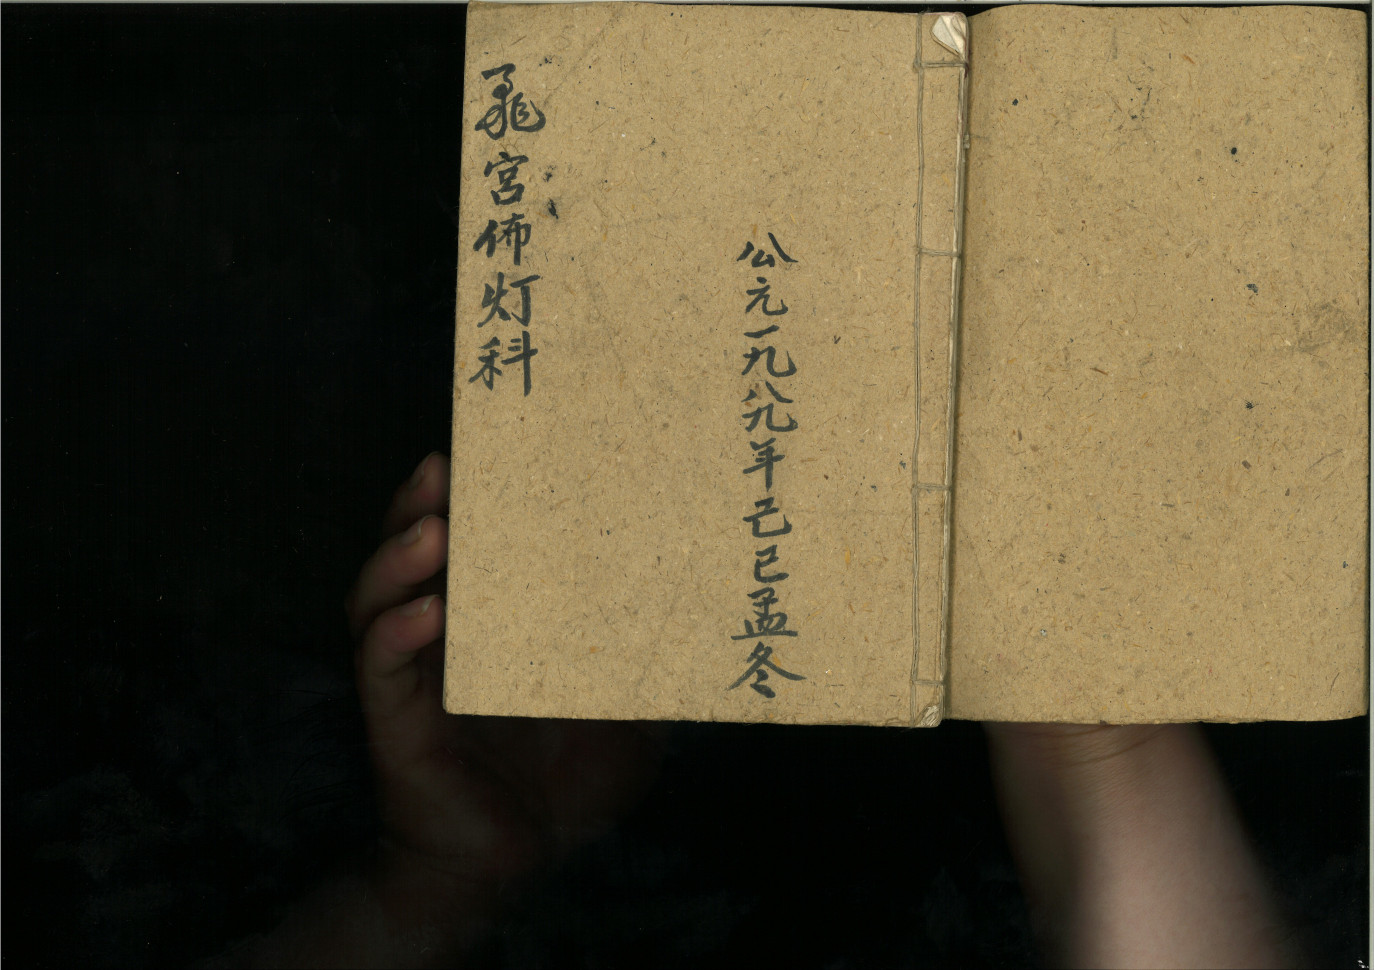 公元一九八九年己巳孟冬
宫佈灯科